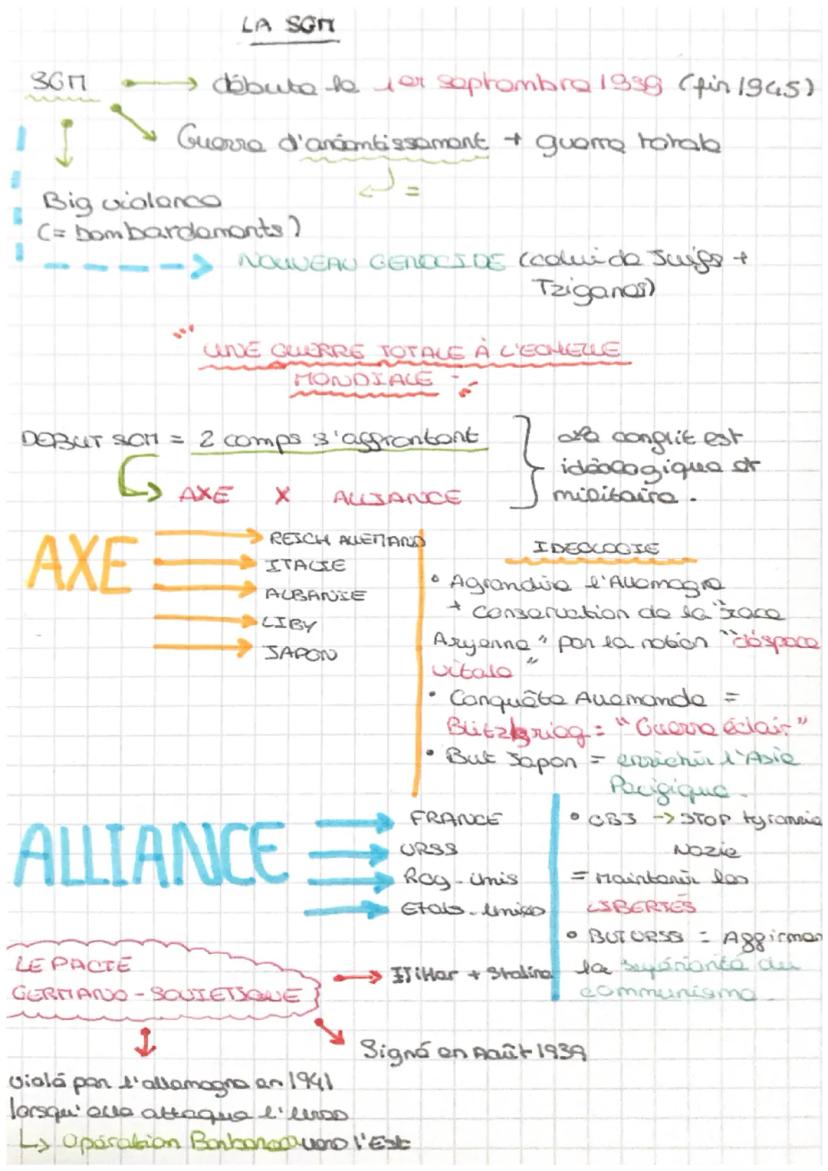 LA SGM
SGM → débute le 1er septembre 1939 (fin 1945)
Guerre d'anéantissement + guerre totale
=
Big violence
(= bombardements)
NOUVEAU GENOCIDE (celui de Juifs +
Tziganes)
UNE GUERRE TOTALE À L'ECHELLE
MONDIALE
DEBUT SGM = 2 camps s'affrontent
AXE X ALLIANCE
conflit est
idéologique et
militaire.
AXE
REICH ALLEMAND
ITALIE
ALBANIE
LIBY
JAPON
IDEOLOGIE
• Agrandir l'Allemagne
+ conservation de la "race
Aryenne" par la notion "d'éspace
vitale"
• Conquête Allemande =
Blitzkrieg = "Guerre éclair"
• But Japon = enrichir l'Asie
Pacifique.
ALLIANCE
FRANCE
URSS
Roy-Unis
Etats-Unis
• OBJ → STOP tyrannie
Nazie
= Maintenir les
LIBERTÉS
• BUT URSS = Affirmer
la supériorité du
communisme.
LE PACTE
GERMANO-SOVIETIQUE
→ Hitler + Staline
Signé en Août 1939
violé par l'allemagne en 1941
lorsqu'elle attaque l'urss
↳ Opération Barbarossa vers l'Est